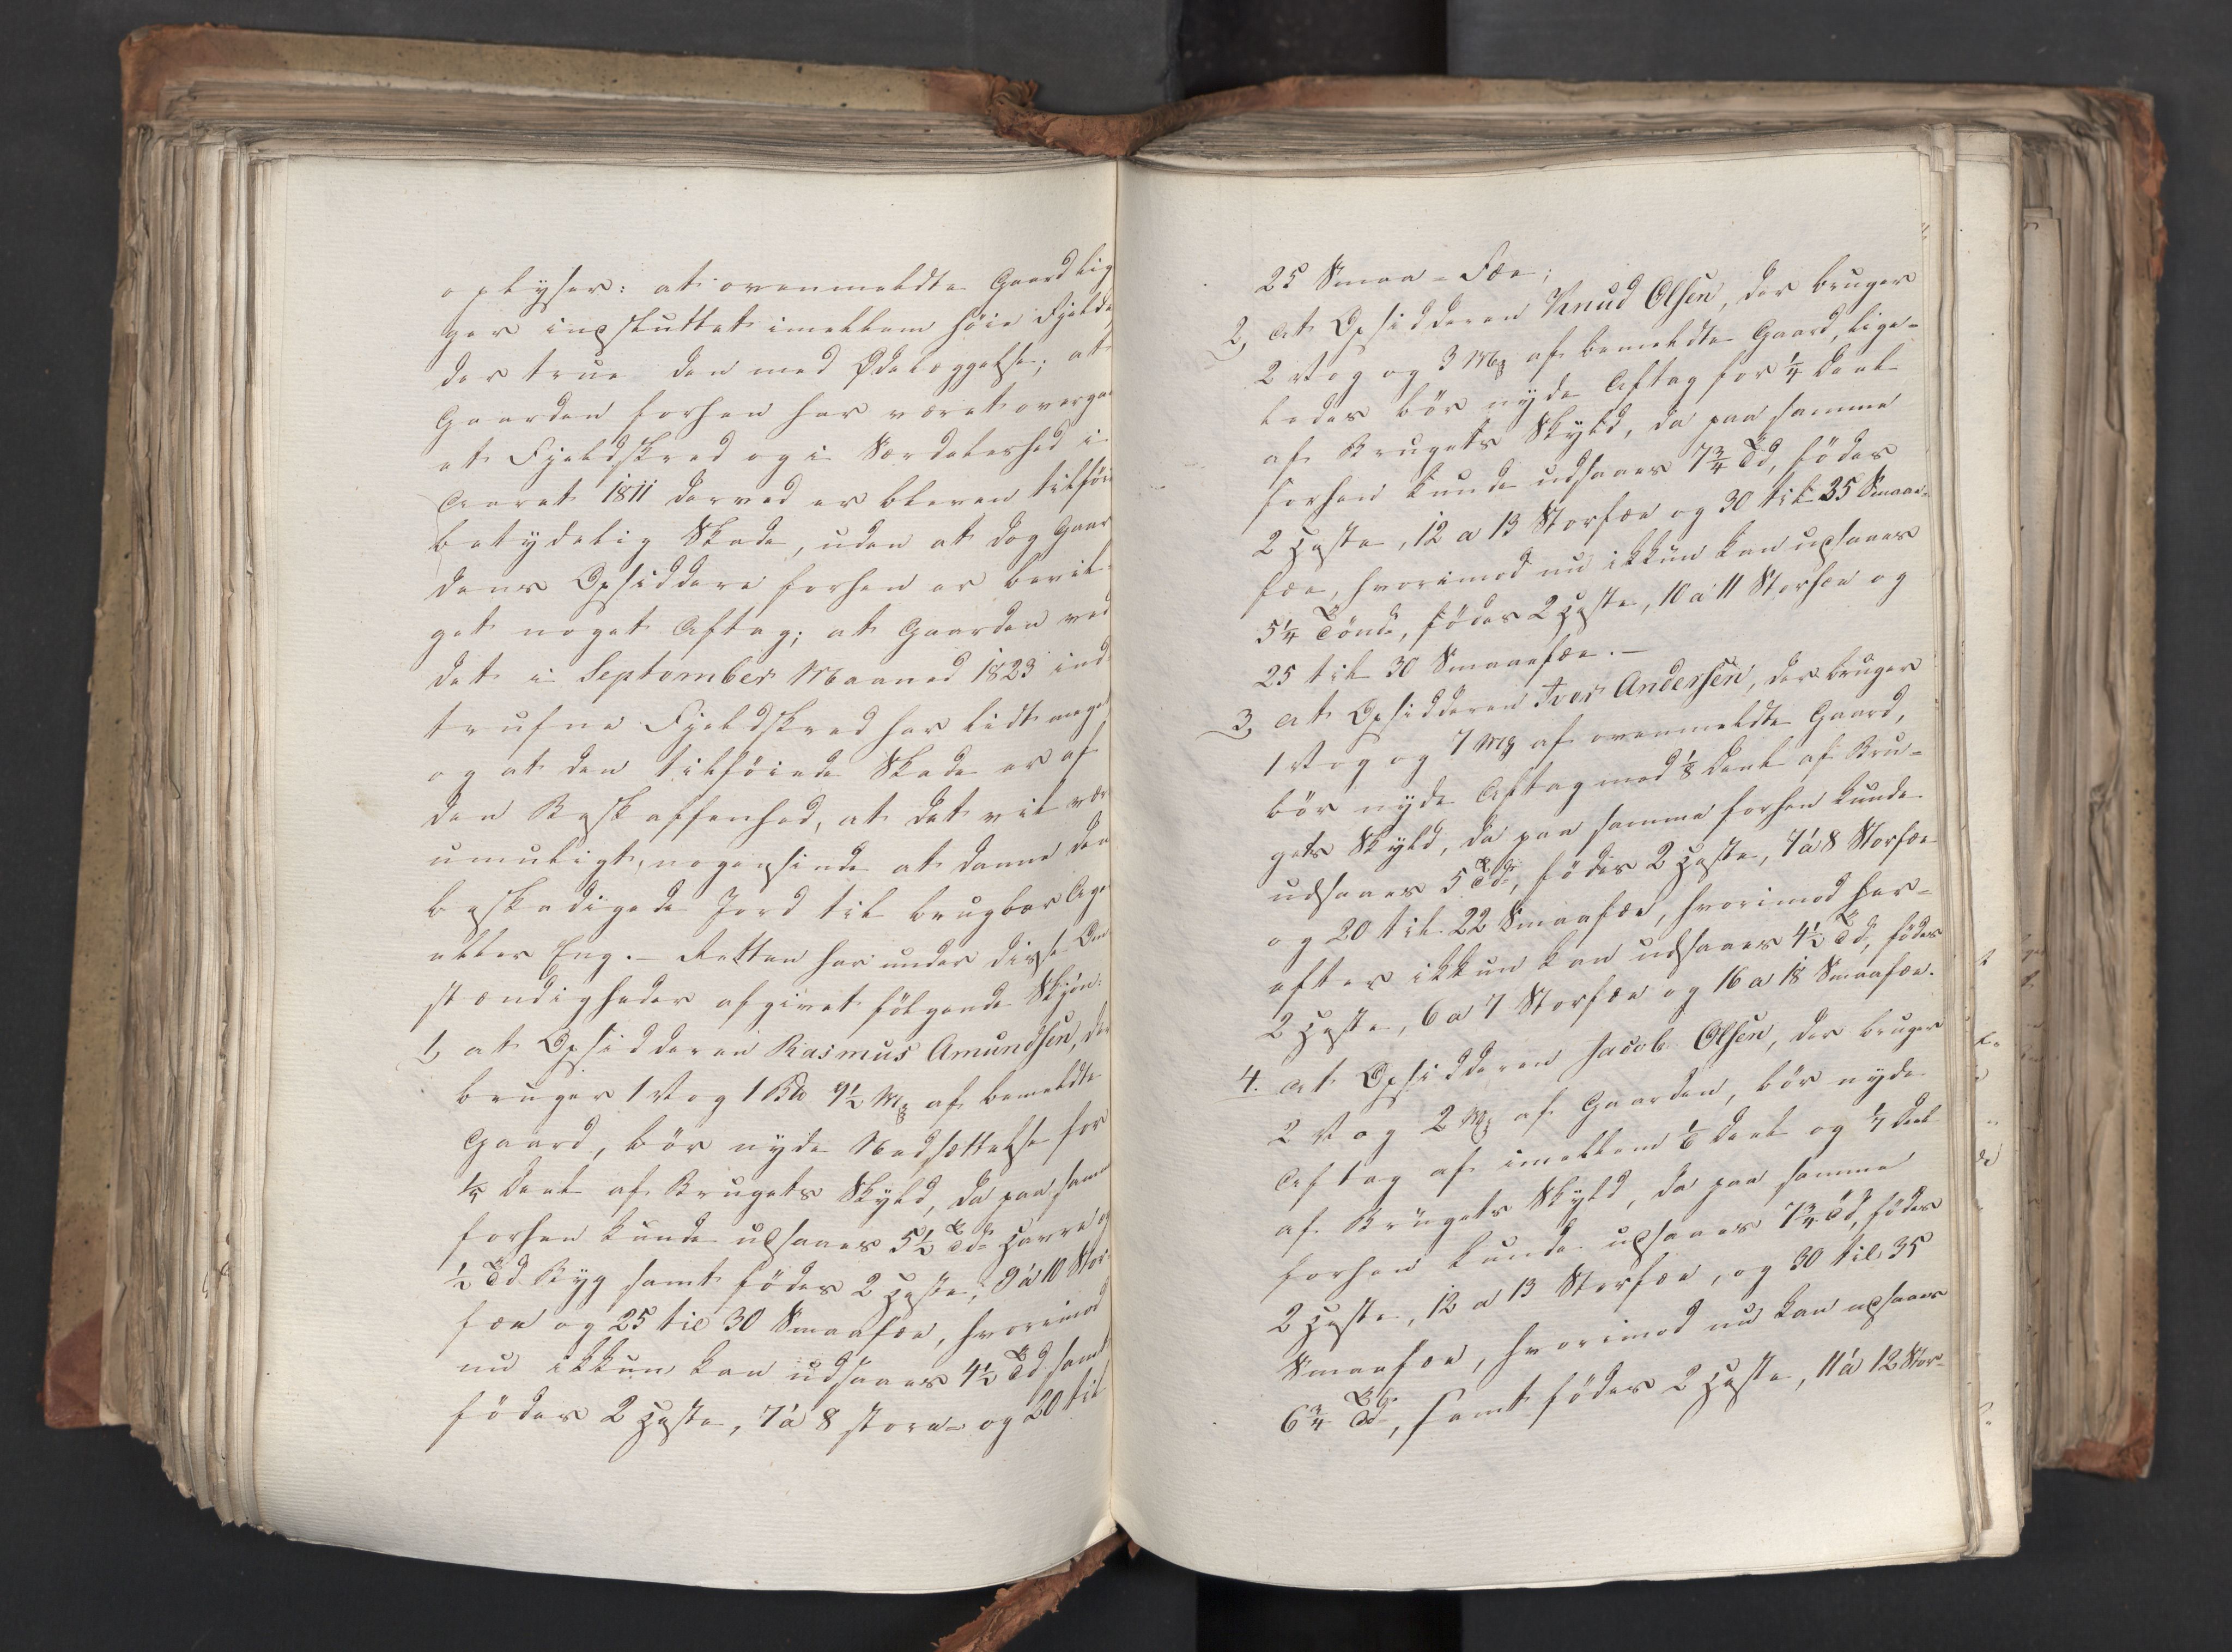 oplyser: at ovenmeldte Gaard lig
ger indsluttet imellem høie Fjelde
der true den med Ødelæggelse; at
Gaarden forhen har været overgaa
et Fjeldskred og i Særdeleshed i
Aaret 1811 derved er bleven tilføi
betydelig Skade, uden at dog Gaar
dens Opsiddere forhen er bevil
get noget Aftag; at Gaarden ved
det i September Maaned 1823 ind
trufne Fjeldskred har lidt meget
og at den tilføiede Skade er af
den Beskaffenhed, at det vil vær
umuligt, nogensinde at danne den
beskadigede Jord til brugbar Age
eller Eng. – Retten har under disse Om
stændigheder afgivet følgende Skjøn:
1, at Opsidderen Rasmus Amundsen, der
bruger 1 Vog 1 Bd 9½ Mg af bemeldte
Gaard, bør nyde Nedsættelse for
¼ Deel af Brugets Skyld, da paa sam
forhen kunde udsaaes 5½ Tdr Havre og
½ Td Byg samt fødes 2 Heste, 9 á 10 Stor
fæe og 25 til 30 Smaafæe, hvorimod
nu ikkun kan udsaaes 4½ Td samt
fødes 2 Heste, 7 á 8 store- og 20 til
25 Smaa-Fæe;
2, at Opsidderen Knud Olsen, der bruger
2 Vog og 3 Mg af bemeldte Gaard, lige-
ledes bør nyde Aftag for ¼ Deel
af Brugets Skyld, da paa samme
forhen kunde udsaaes 7¾ Td, fødes
2 Heste, 12 a 13 Storfæe og 30 til 35 Smaae-
fæe, hvorimod nu ikkun kan udsaaes
5¼ Tønde, fødes 2 Heste, 10 á 11 Storfæe og
25 til 30 Smaaefæe. –
3, at Opsidderen Iver Andersen, der bruger
1 Vog og 7 Mg af ovenmeldte Gaard,
bør nyde Aftag med ⅛ Deel af Bru-
gets Skyld, da paa samme forhen kunde
udsaaes 5 Tdr, fødes 2 Heste, 7 á 8 Storfæe
og 20 til 22 Smaafæe, hvorimod her-
efter ikkun kan udsaaes 4½ Td, fødes
2 Heste, 6 a 7 Storfæe og 16 a 18 Smaafæe.
4. at Opsidderen Jacob Olsen, der bruger
2 Vog 2 Mg af Gaarden, bør nyde
Aftag af imellem ⅙ Deel og 1/7 Deel
af Brugets Skyld, da paa samme
forhen kunde udsaaes 7¾ Td, fødes
2 Heste, 12 a 13 Storfæe, og 30 til 35
Smaafæe, hvorimod nu kan udsaaes
6¾ Tdr, samt fødes 2 Heste, 11 á 12 Stor-